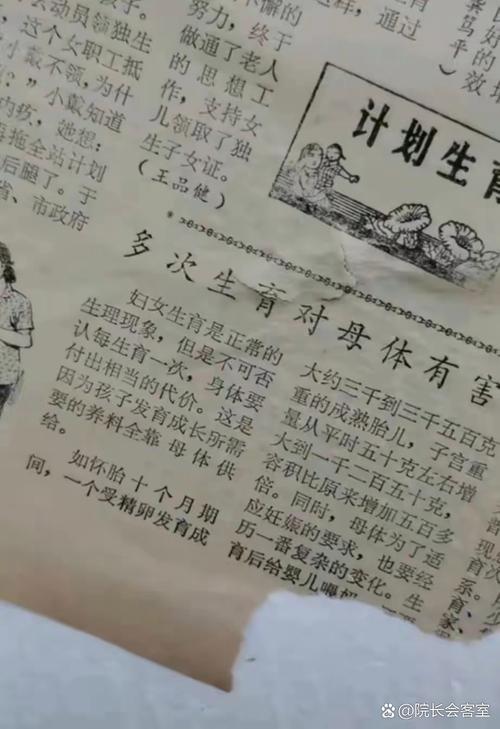 会动员领独生
这个女职工抵
小戴不领,为什
?”小戴知道
内疚,她想:
拖全站计划
后腿了。于
省、市政府
不懈的
努力,终于
做通了老人
的思想工
作,支持女
儿领取了独
生子女证。
(王品健)
通过
计划生育
多次生育对母体有害
妇女生育是正常的
生理现象,但是不可否
认每生育一次,身体要
付出相当的代价。这是
因为孩子发育成长所需
要的养料全靠母体供
给。
如怀胎十个月期
间,一个受精卵发育成
大约三千到三千五百克
重的成熟胎儿,子宫重
量从平时五十克左右增
大到一千二百五十克,
容积比原来增加五百多
倍。同时,母体为了适
应妊娠的要求,也要经
历一番复杂的变化。生
育后给婴儿哺
院长会客室